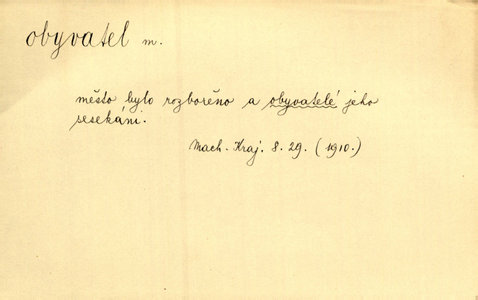 obyvatel m.
město bylo rozbořeno a obyvatelé jeho
sesekáni.
Mach. Kraj. 8. 29. (1910.)